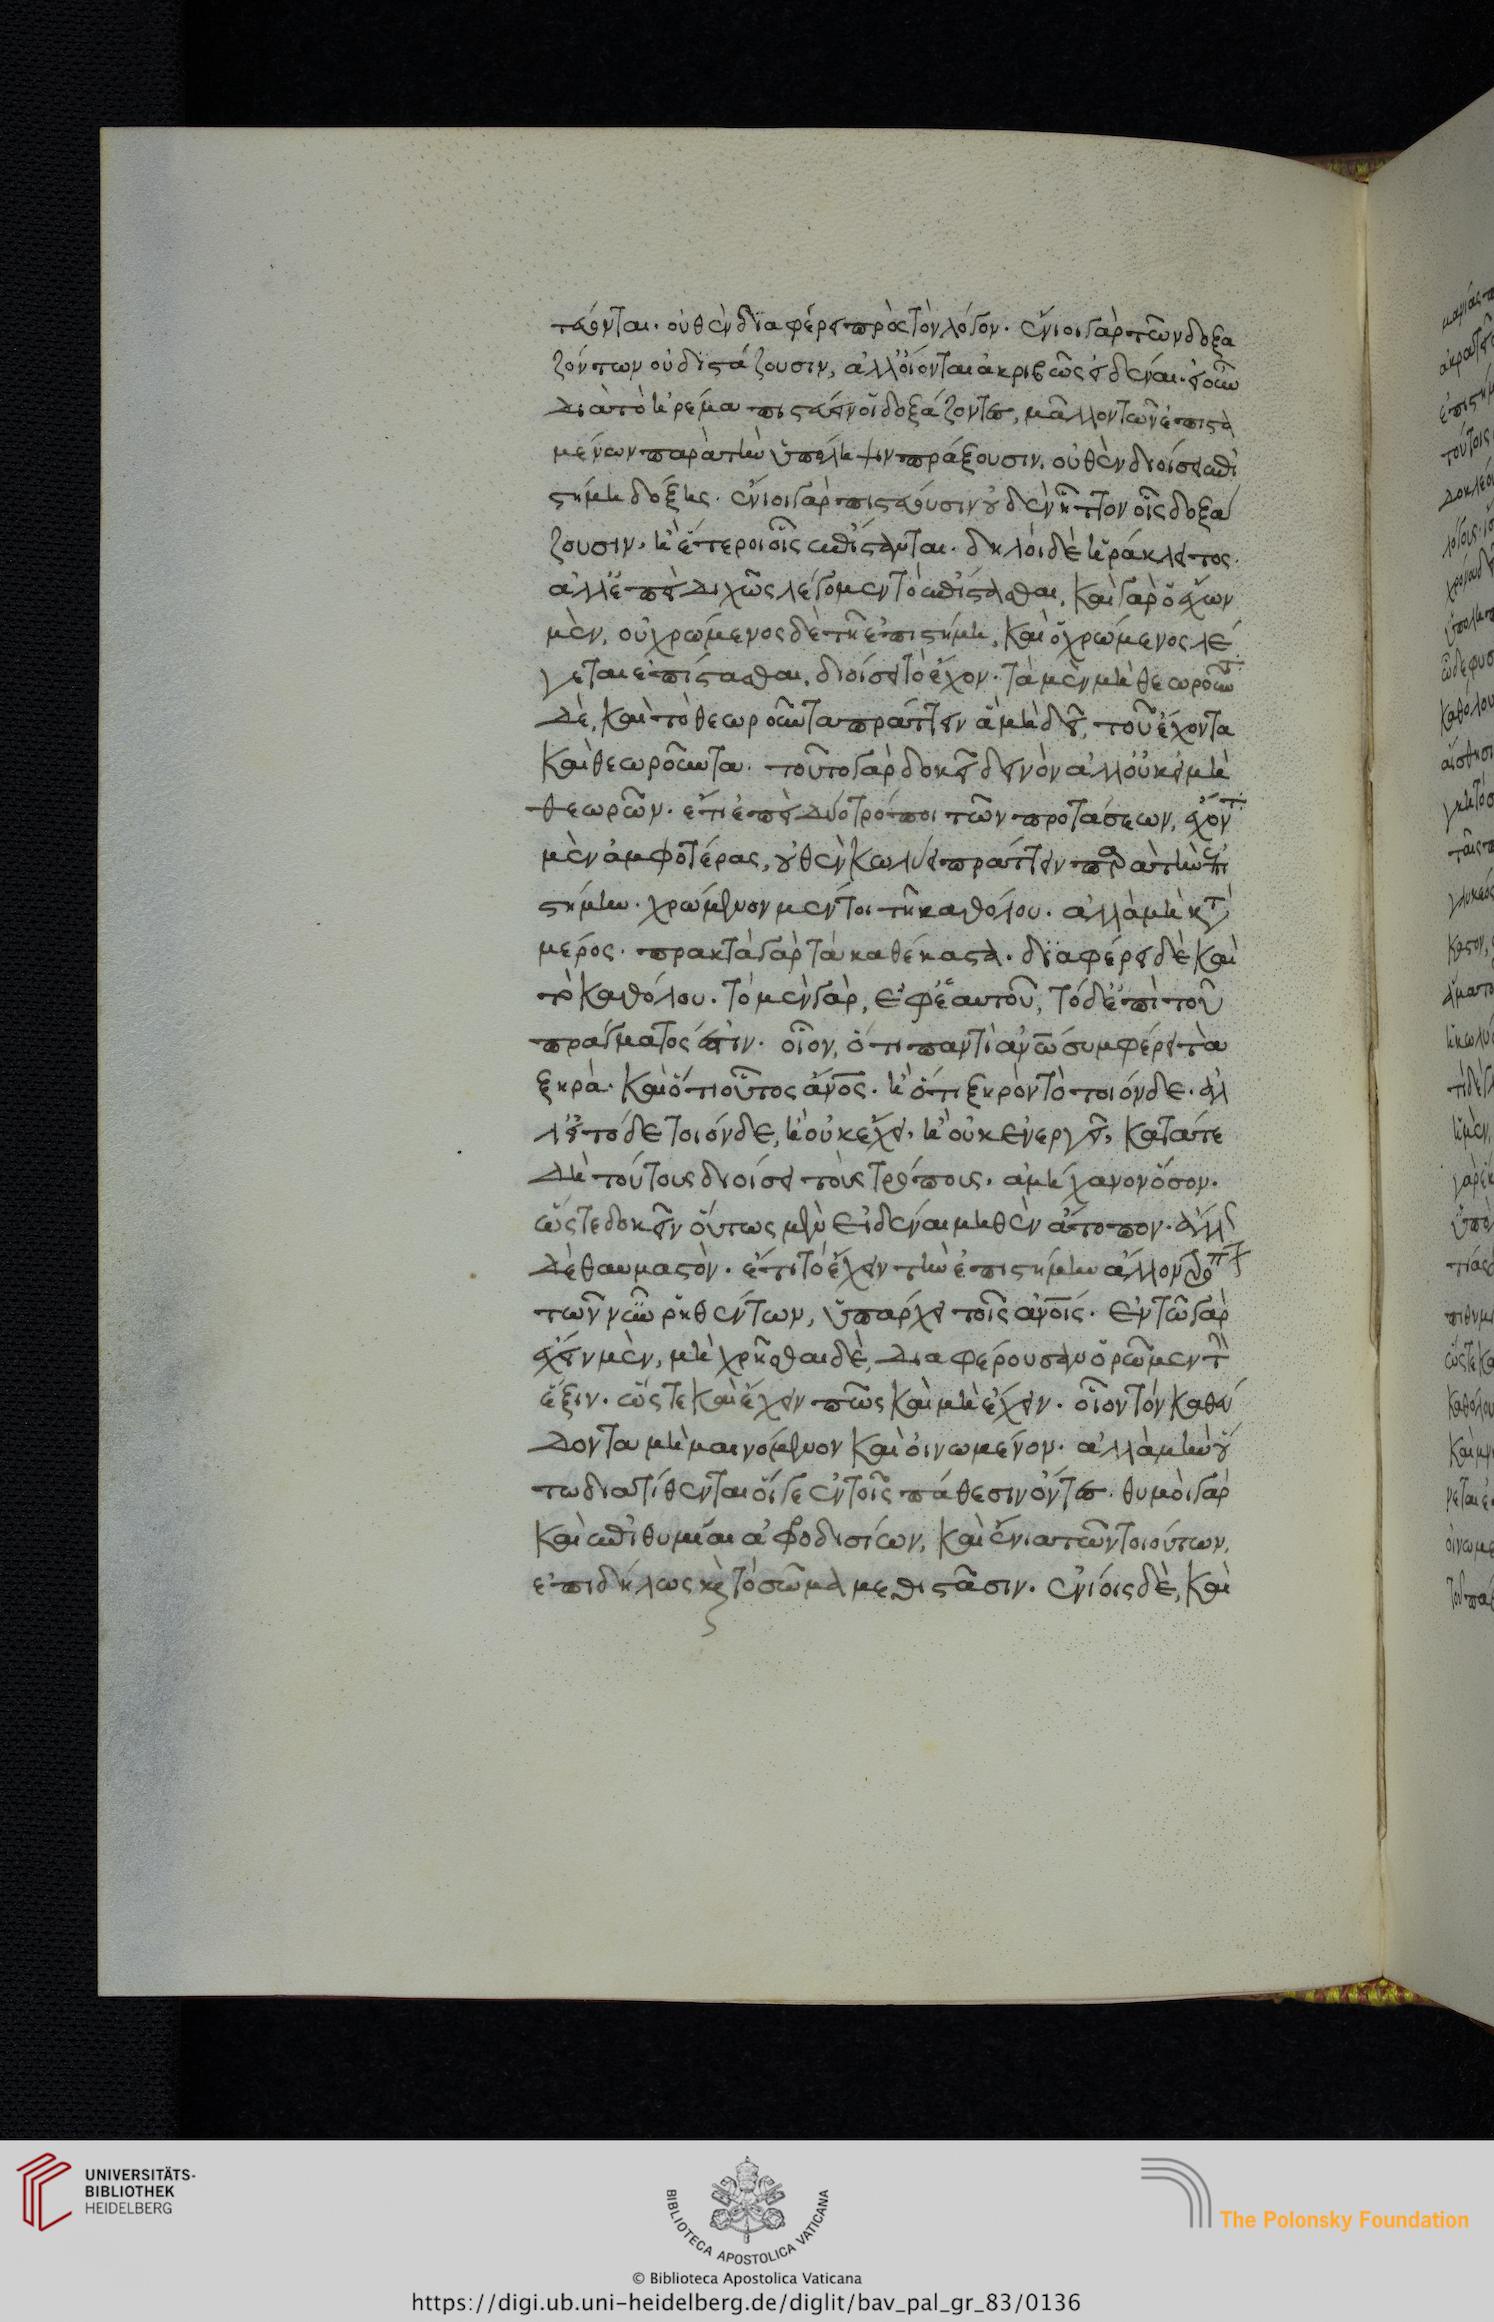 τεύονται. οὐθὲν διαφέρει πρὸς τὸν λόγον. ἔνιοι γὰρ τῶν δοξα
ζόντων οὐ διστάζουσιν, ἀλλ' οἴονται ἀκριβῶς εἰδέναι. εἰ οὖν
διὰ τὸ ἠρέμα πιστεύειν οἱ δοξάζοντες, μᾶλλον τῶν ἐπιστα
μένων παρὰ τὴν ὑπόληψιν πράξουσιν, οὐθὲν διοίσει ἐπι
στήμη δόξης. ἔνιοι γὰρ πιστεύουσιν οὐδὲν ἧττον οἷς δοξά
ζουσιν, ἢ ἕτεροι οἷς ἐπίστανται. δηλοῖ δὲ ἡράκλειτος.
ἀλλ' ἐπεὶ διχῶς λέγομεν τὸ ἐπίστασθαι, καὶ γὰρ ὁ ἔχων
μὲν, οὐ χρώμενος δὲ τῇ ἐπιστήμη, καὶ ὁ χρώμενος λέ
γεται ἐπίστασθαι, διοίσει τὸ ἔχον. τὰ μὲν μὴ θεωροῦντ
δὲ, καὶ τὸ θεωροῦντα πράττειν ἃ μὴ δεῖ, τοῦ ἔχοντα
καὶ θεωροῦντα. τοῦτο γὰρ δοκεῖ δεινὸν ἀλλ' οὐκ εἰ μὴ
θεωρῶν. ἔτι ἐπεὶ δύο τρόποι τῶν προτάσεων, ἔχοντ
μὲν ἀμφοτέρας, οὐθὲν κωλύει πράττειν παρὰ τὴν ἐπι
στήμην. χρώμενον μέντοι τῇ καθόλου. ἀλλὰ μὴ κτ
μέρος. πρακτὰ γὰρ τὰ καθέκαστα. διαφέρει δὲ καὶ
τὸ καθόλου. τὸ μὲν γὰρ, ἐφ' ἑαυτοῦ, τὸ δ' ἐπὶ τοῦ
πράγματός ἐστιν. οἷον, ὅτι παντὶ ἀνω συμφέρει τὰ
ξηρὰ. καὶ ὅτι οὗτος ἄνος. ἢ ὅτι ξηρὸν τὸ τοιόνδε. ἀλ
λ' εἰ τόδε τοιόνδε, ἢ οὐκ ἔχει, ἢ οὐκ ἐνεργεῖ, κατά τε
δὴ τούτους διοίσει τοὺς τρόπους. ἀμήχανον ὅσον.
ὥστε δοκεῖν οὕτως μὲν εἰδέναι μηθὲν ἄτοπον. ἄλλ
δὲ θαυμαστὸν. ἔτι τὸ ἔχειν τὴν ἐπιστήμην ἄλλον τρόπ
τῶν νῦν ῥηθέντων, ὑπάρχει τοῖς ἀνοις. ἐν τῶ γὰρ
ἔχειν μὲν, μὴ χρῆσθαι δὲ, διαφέρουσαν ὁρῶμεν τὴν
ἕξιν. ὥστε καὶ ἔχειν πῶς καὶ μὴ ἔχειν. οἷον τὸν καθεύ
δοντα μὴ μαινόμενον καὶ οἰνωμένον. ἀλλὰ μὴν οὕ
τω διατίθενται οἵ γε ἐν τοῖς πάθεσιν ὄντες. θυμοὶ γὰρ
καὶ ἐπιθυμίαι ἀφροδισίων, καὶ ἔνια τῶν τοιούτων,
ἐπιδήλως καὶ τὸ σῶμα μεθιστᾶσιν. ἐνίοις δὲ, καὶ
UNIVERSITÄTS-
BIBLIOTHEK
HEIDELBERG
BIBLIOTECA APOSTOLICA VATICANA
The Polonsky Foundation
© Biblioteca Apostolica Vaticana
https://digi.ub.uni-heidelberg.de/diglit/bav_pal_gr_83/0136